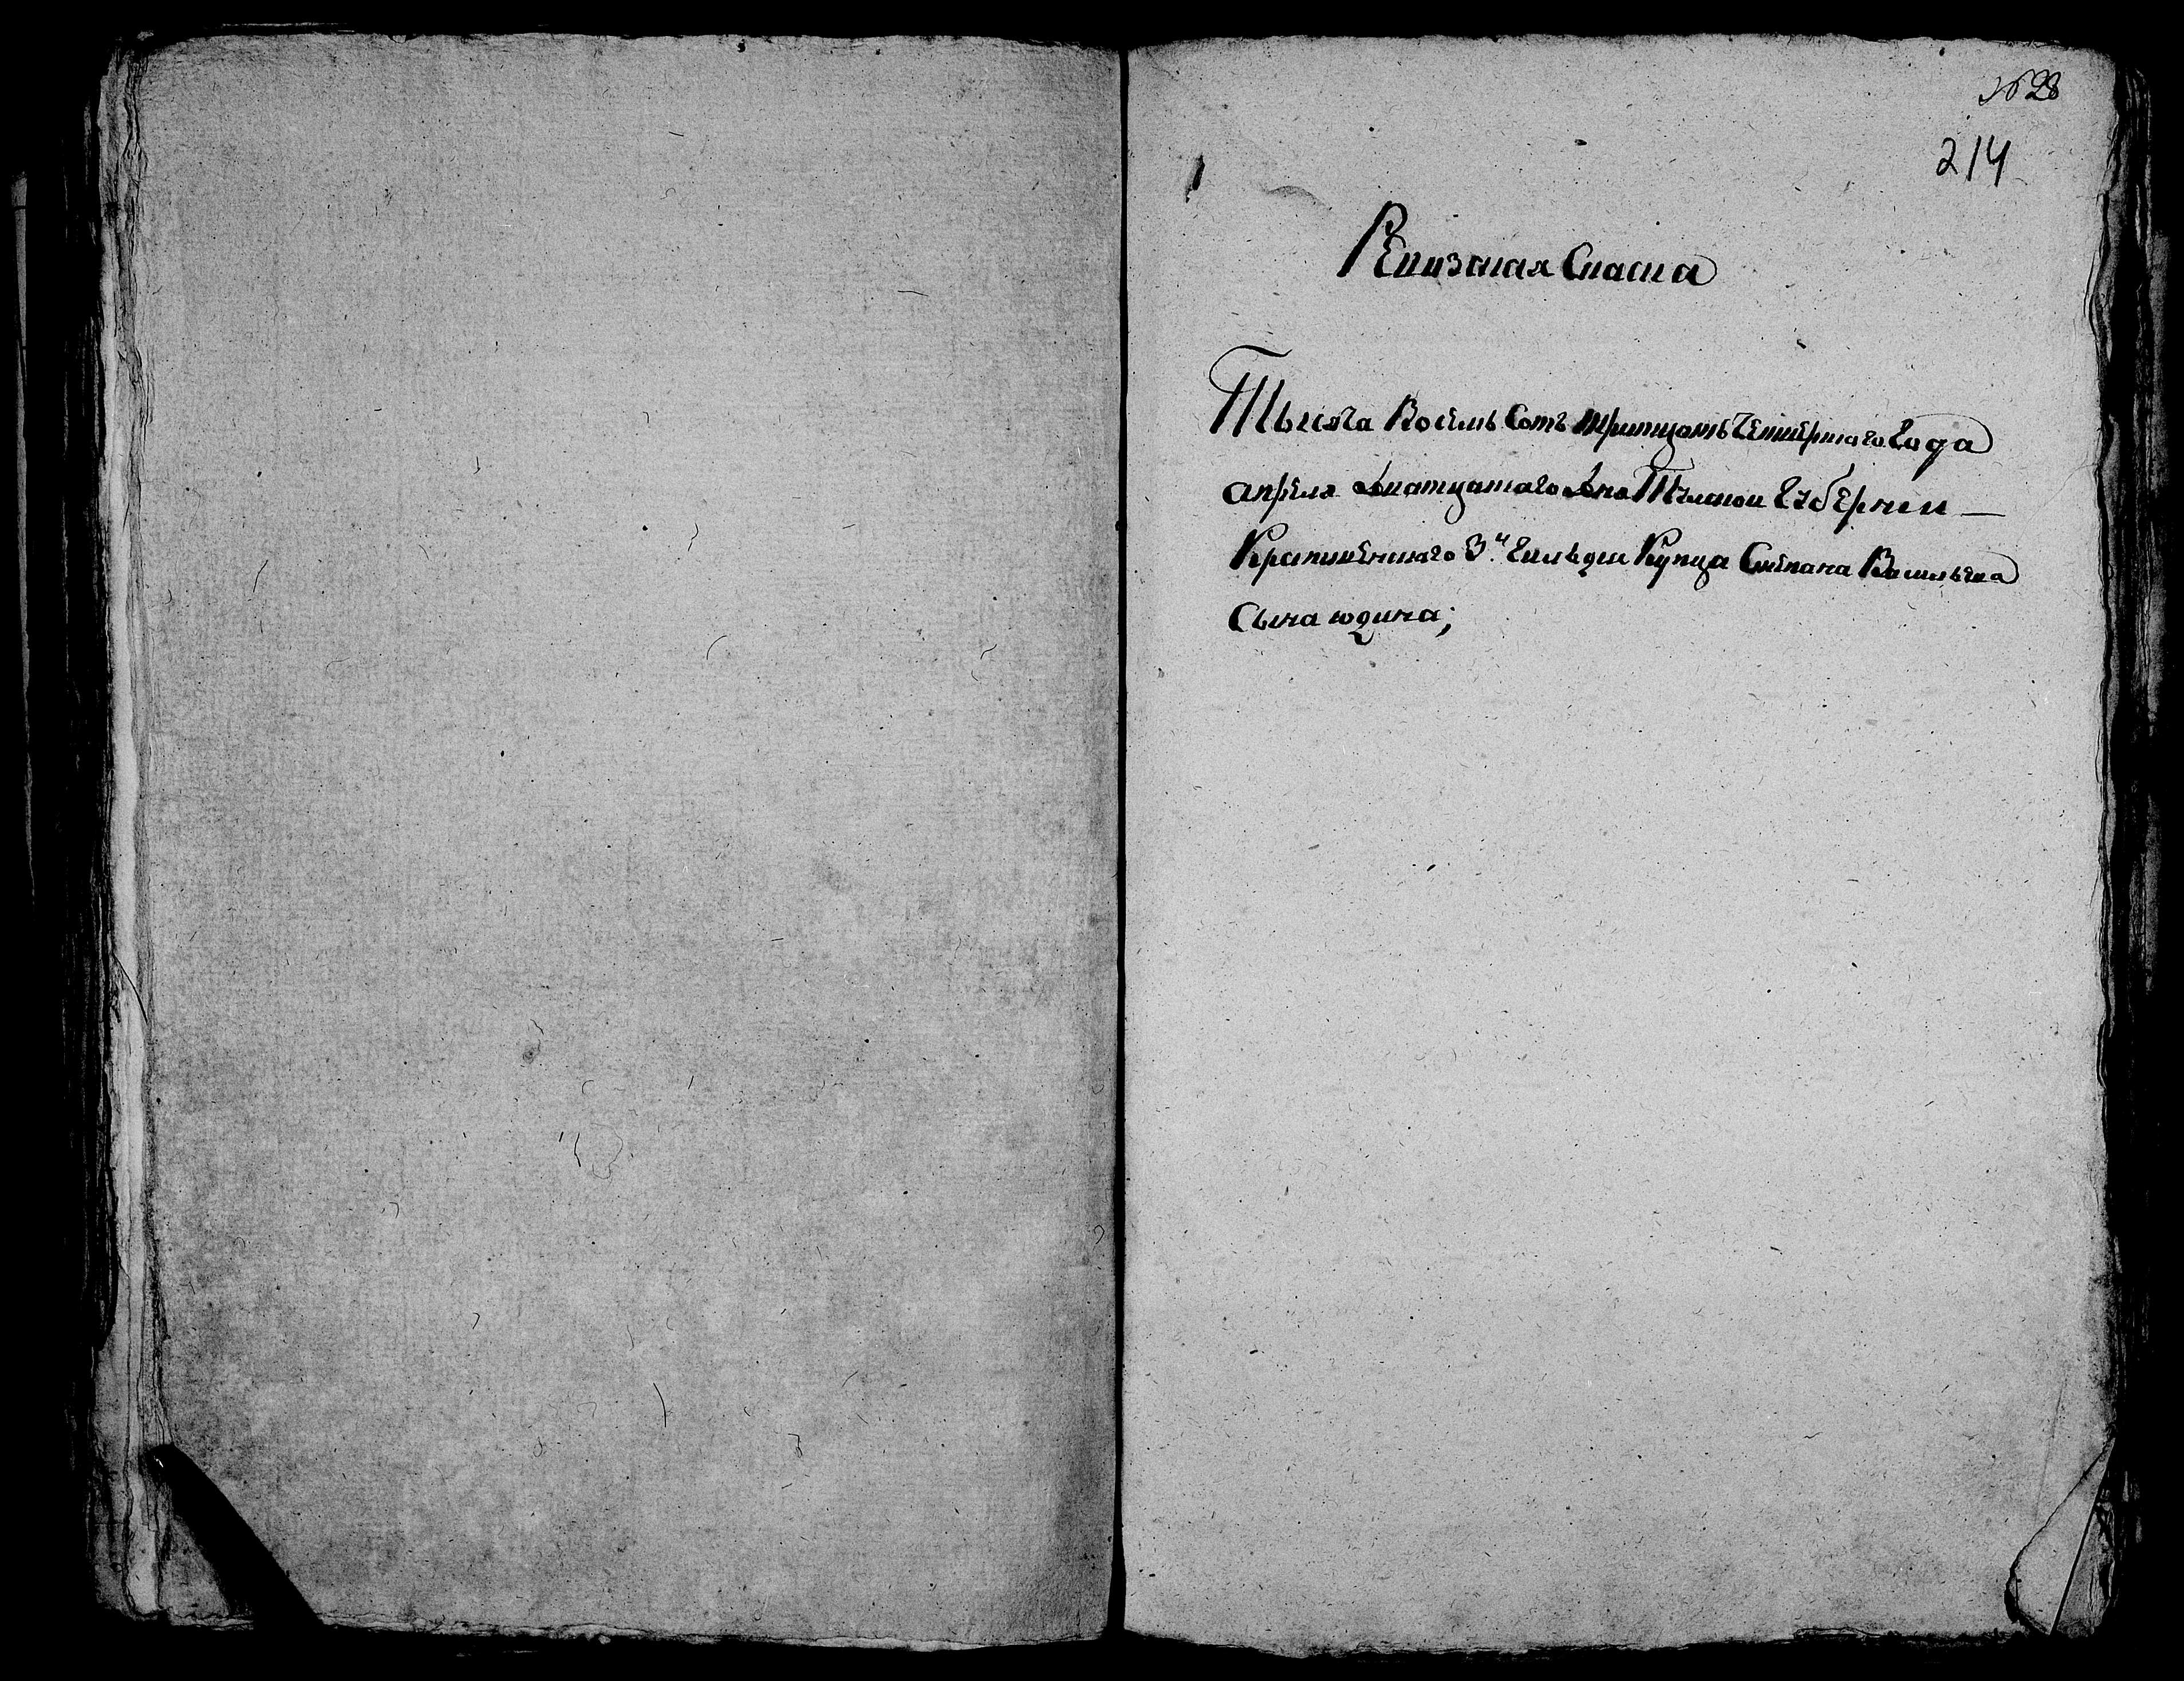 № 28
214
Ревизская Сказка
Тысяча Восемь Сотъ тритцать Четвертаго Года
апреля дватцатаго дня Тульской Губернии —
Крапивенскаго 3й Гильдии Купца Степана Васильева
Сына юдина;